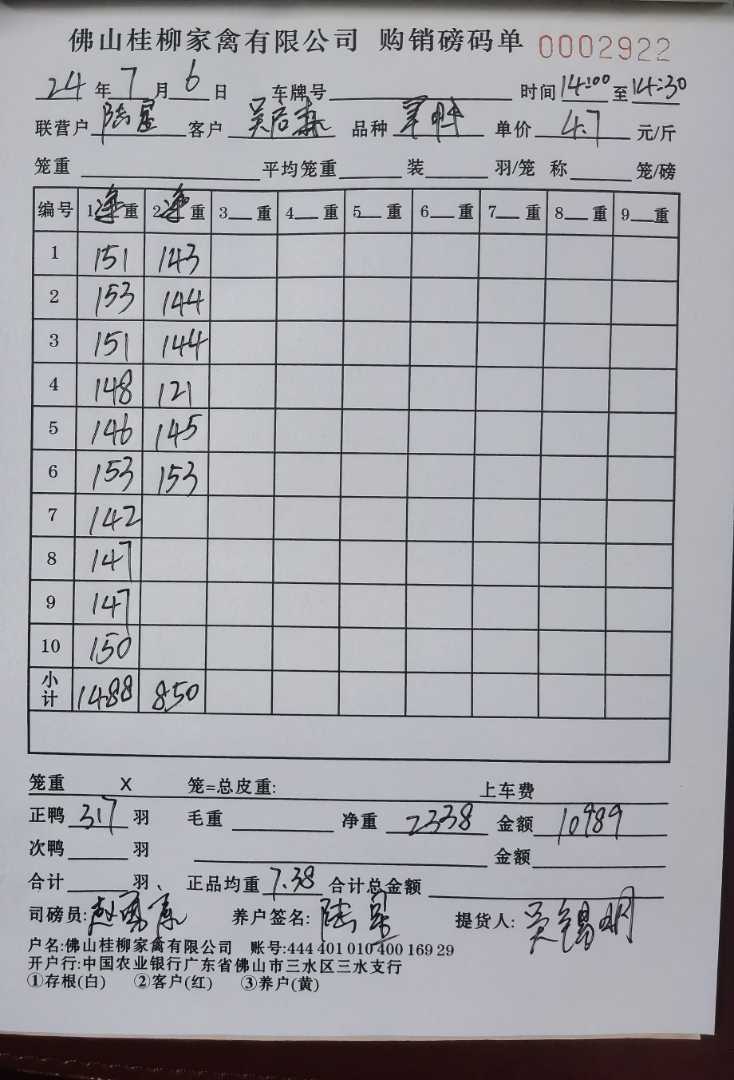 佛山桂柳家禽有限公司 购销磅码单 0002922
24年7月6日 车牌号 时间14:00至14:30
联营户 客户 品种 单价4.7元/斤
笼重 平均笼重 装 羽/笼 称 笼/磅
编号 1净重 2净重 3 重 4 重 5 重 6 重 7 重 8 重 9 重
1 151 143
2 153 144
3 151 144
4 148 121
5 146 145
6 153 153
7 142
8 147
9 147
10 150
小计 1488 850
笼重 X 笼=总皮重: 上车费
正鸭317羽 毛重 净重2338 金额10989
次鸭 羽 金额
合计 羽、 正品均重7.38 合计总金额
司磅员: 养户签名: 提货人:吴锡明
户名:佛山桂柳家禽有限公司 账号:444 401 010 400 169 29
开户行:中国农业银行广东省佛山市三水区三水支行
①存根(白) ②客户(红) ③养户(黄)